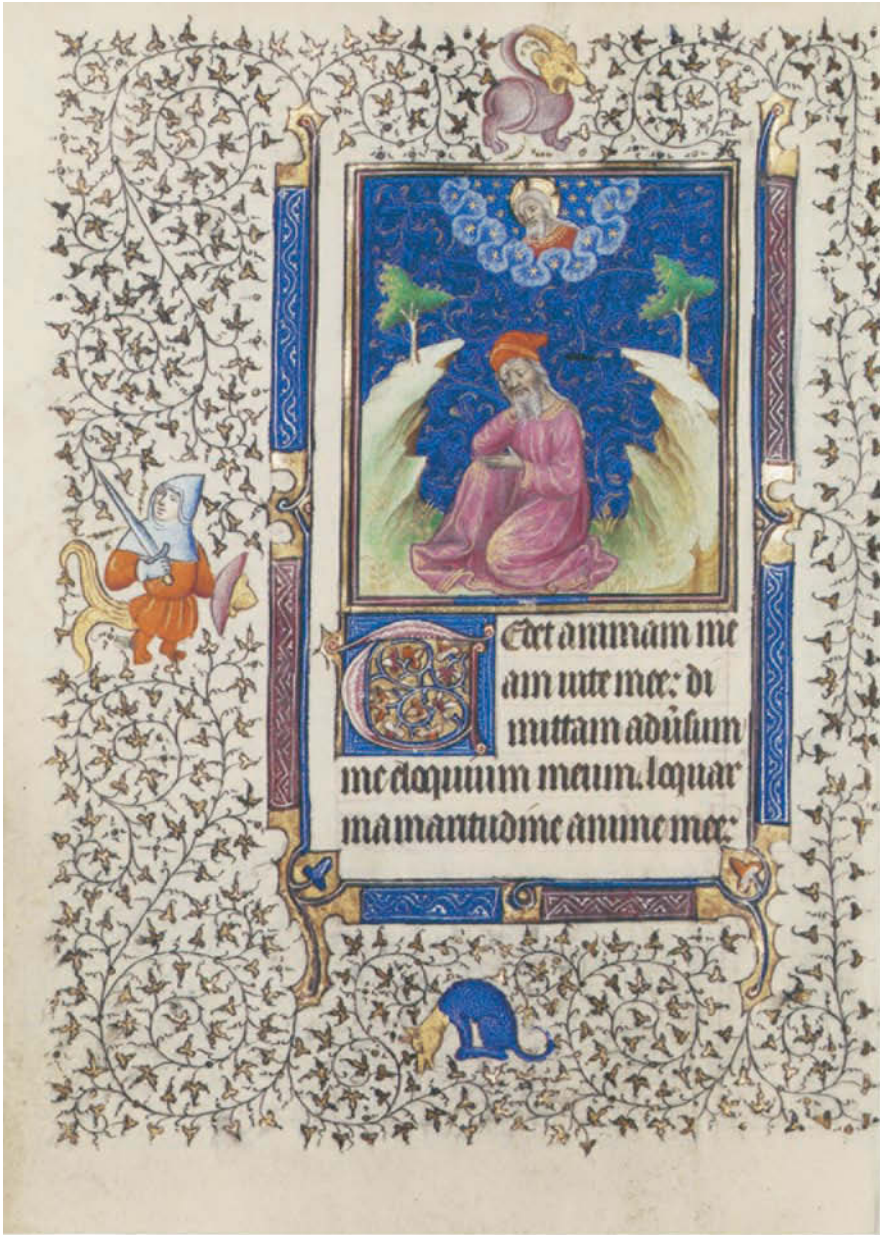 Tedet animam me
am uite mee: di
mittam adu̅sum
me eloquium meum. loquar
in amaritudine anime mee: